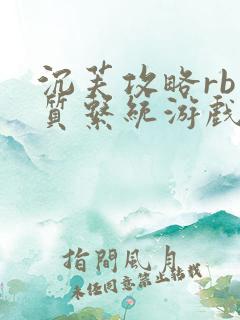 沉芙攻略rb
质系统游戏
指間風月
未经同意禁止转载